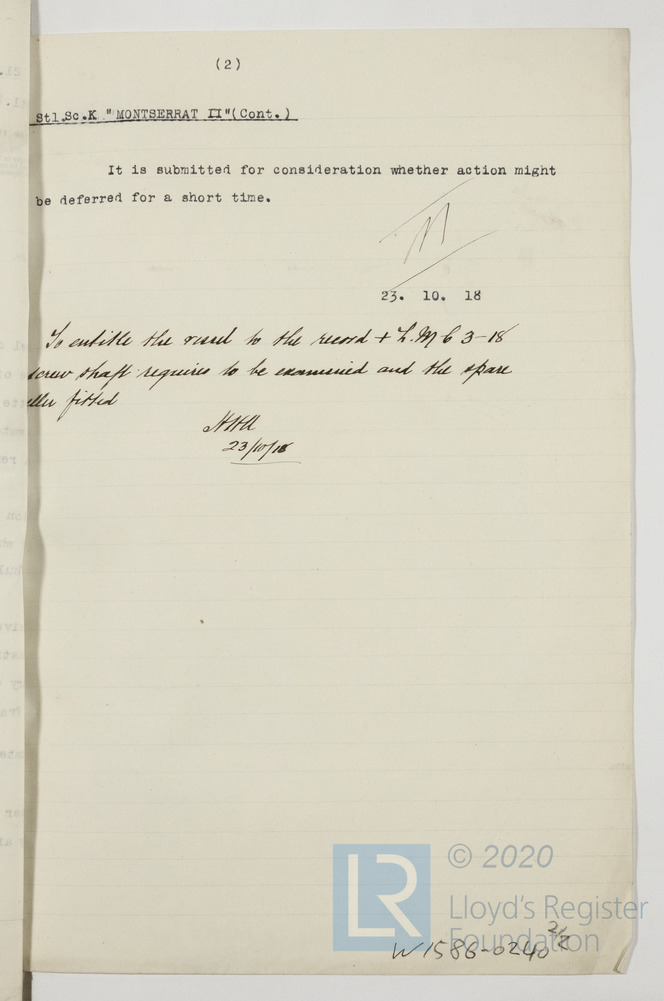 (2)
Stl.Sc.K "MONTSERRAT II"(Cont.)
It is submitted for consideration whether action might
be deferred for a short time.
23. 10. 18
To entitle the vessel to the record + L.M.C 3-18
screw shaft requires to be examined and the spare
eller fitted
23/10/18
© 2020
LR
Lloyd's Register
Foundation
W1586-0240 2/2